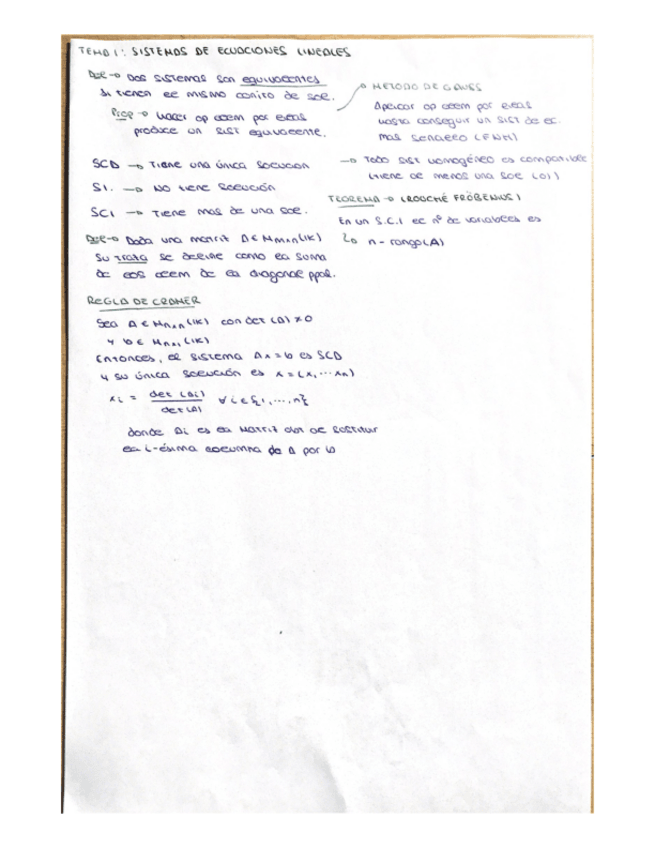 TEMA 1: SISTEMAS DE ECUACIONES LINEALES
DEF → Dos sistemas son equivalentes
si tienen el mismo conjto de sol.
Prop → Hacer op elem por filas
produce un SIST equivalente.
→ METODO DE GAUSS
Aplicar op elem por filas
hasta conseguir un SIST de ec.
mas sencillo (FNH)
SCD → Tiene una única solución
SI. → No tiene solución
SCI → Tiene mas de una sol.
→ Todo SIST homogéneo es compatible
(tiene al menos una sol (0))
TEOREMA → (ROUCHÉ FRÖBENIUS)
En un S.C.I el nº de variables es
↳ n - rango(A)
DEF → Dada una matriz A ∈ Mnxn(IK)
su traza se define como la suma
de los elem de la diagonal ppal.
REGLA DE CRAMER
Sea A ∈ Mnxn(IK) con det(A) ≠ 0
y b ∈ Mnx1(IK)
Entonces, el sistema Ax = b es SCD
y su única solución es x = (x1, ... xn)
xi = det(Ai) / det(A) ∀ i ∈ {1, ..., n}
donde Ai es la matriz obt al sustituir
la i-ésima columna de A por b